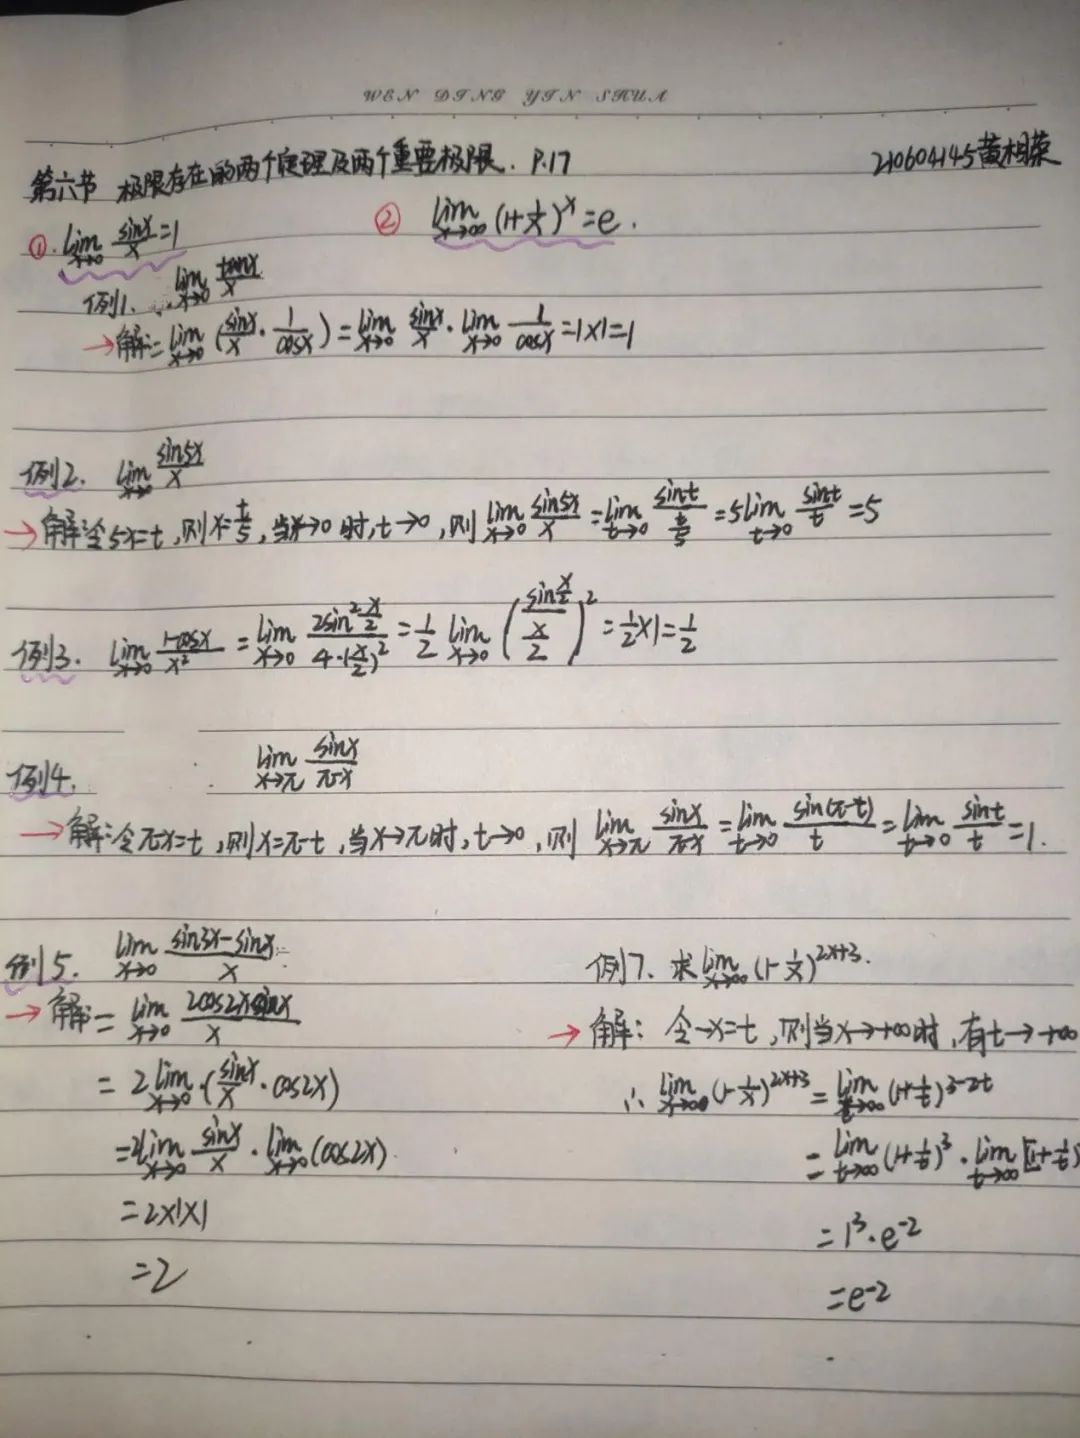 WEN DING YIN SHUA
第六节 极限存在的两个定理及两个重要极限. P.17
210604145黄相荣
①. lim x→0 sinx/x =1
② lim x→∞ (1+1/x)^x =e.
例1. lim x→0 tanx/x
→解:= lim x→0 (sinx/x · 1/cosx) = lim x→0 sinx/x · lim x→0 1/cosx =1×1=1
例2. lim x→0 sin5x/x
→解:令5x=t,则x=t/5,当x→0时,t→0,则 lim x→0 sin5x/x = lim t→0 sint/(t/5) =5 lim t→0 sint/t =5
例3. lim x→0 (1-cosx)/x² = lim x→0 2sin²(x/2)/(4·(x/2)²) = 1/2 lim x→0 (sin(x/2)/(x/2))² = 1/2×1 = 1/2
例4. lim x→π sinx/(π-x)
→解:令π-x=t,则x=π-t,当x→π时,t→0,则 lim x→π sinx/(π-x) = lim t→0 sin(π-t)/t = lim t→0 sint/t =1.
例5. lim x→0 (sin3x-sinx)/x
→解:= lim x→0 2cos2xsinx/x
= 2 lim x→0 (sinx/x · cos2x)
=2 lim x→0 sinx/x · lim x→0 (cos2x)
=2×1×1
=2
例7. 求 lim x→∞ (1-1/x)^(2x+3).
→解: 令-x=t,则当x→+∞时,有t→+∞
∴ lim x→∞ (1-1/x)^(2x+3) = lim t→∞ (1+1/t)^(3-2t)
= lim t→∞ (1+1/t)^3 · lim t→∞ [(1+1/t)
=1³·e^-2
=e^-2